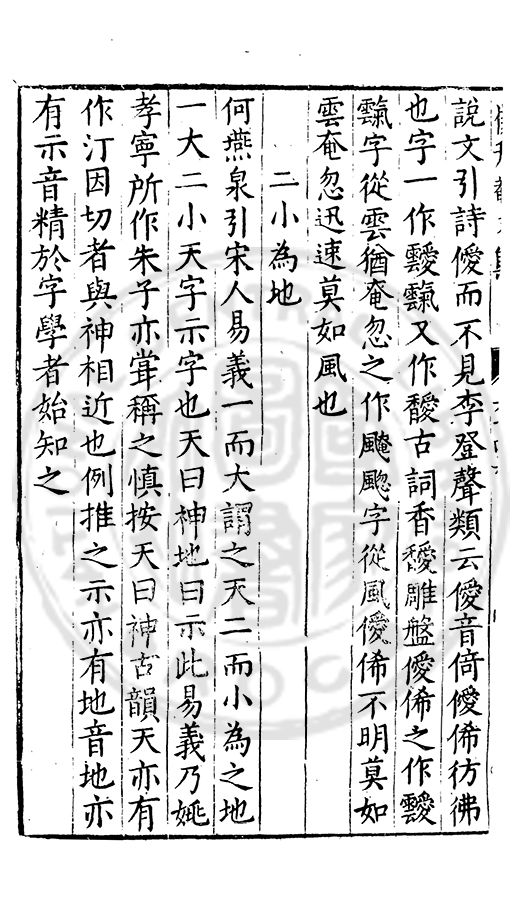 說文引詩僾而不見李登聲類云僾音倚僾俙彷彿
也字一作靉霼又作馤古詞香馤雕盤僾俙之作靉
霼字從雲猶奄忽之作䬓颮字從風僾俙不明莫如
雲奄忽迅速莫如風也
二小為地
何燕泉引宋人易義一而大謂之天二而小為之地
一大二小天字示字也天曰神地曰示此易義乃姚
孝寧所作朱子亦嘗稱之慎按天曰神古韻天亦有
作汀因切者與神相近也例推之示亦有地音地亦
有示音精於字學者始知之